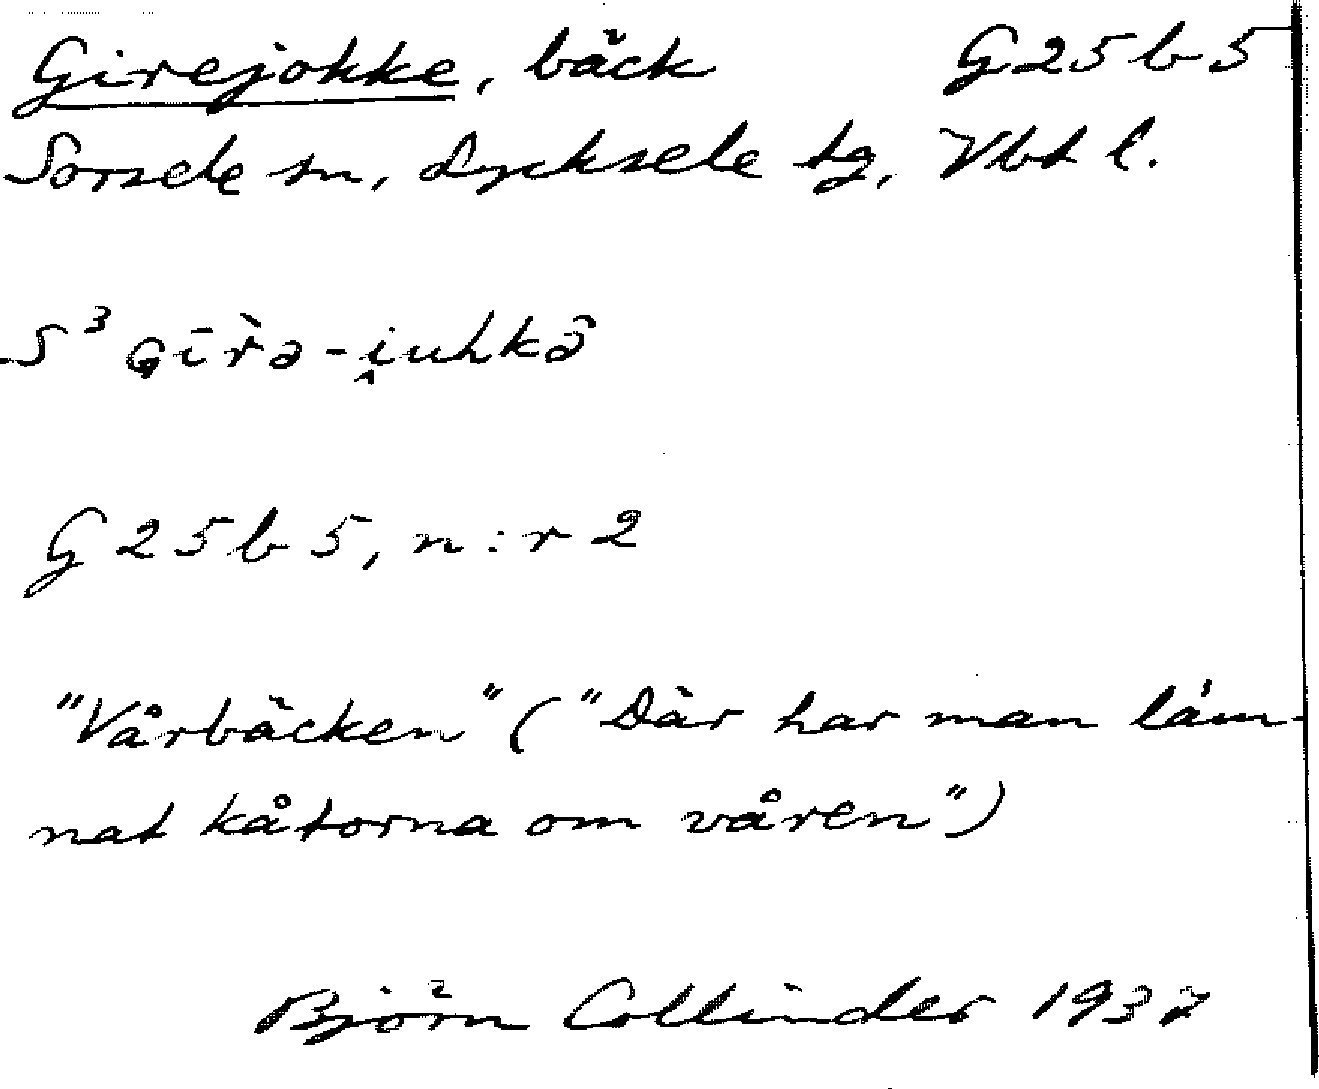 Girejokke, bäck G25b5
Sorsele sn, Lycksele tg, Vbt l.
S³ Gīr̀ə-i̭uhkə̂
G25b5, n:r 2
"Vårbäcken" ("Där har man läm-
nat kåtorna om våren")
Björn Collinder 1937